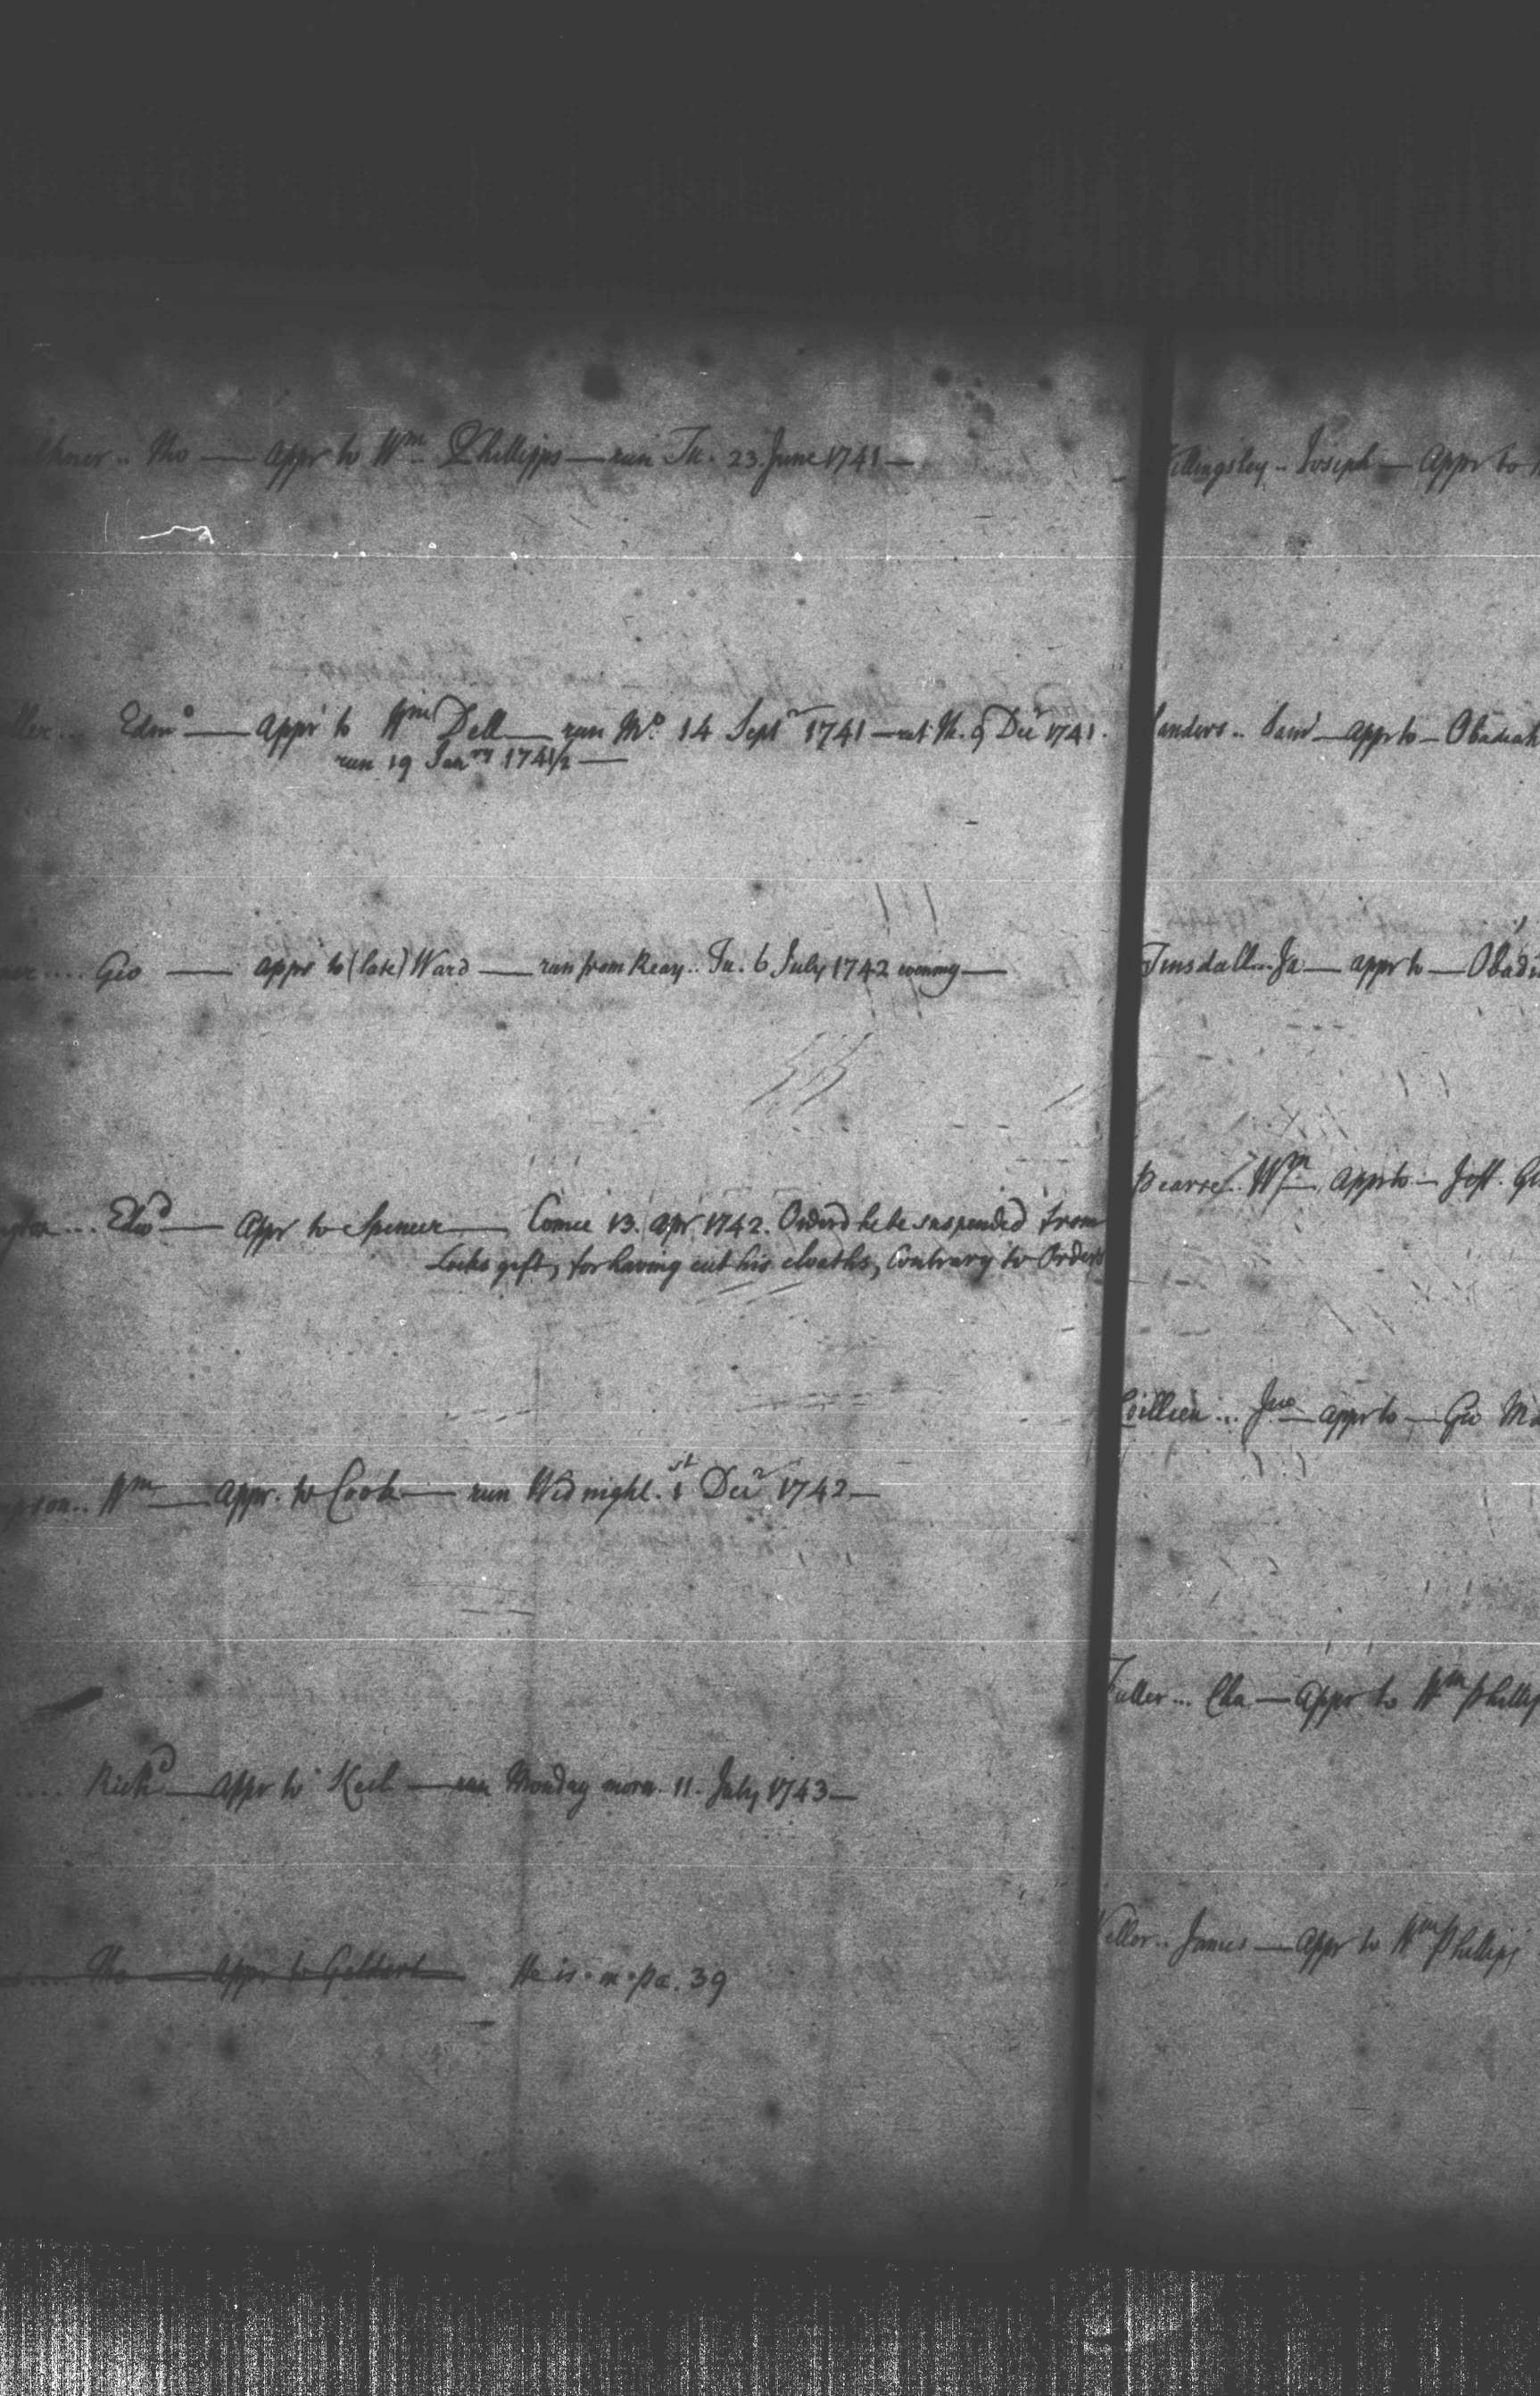 Tho — appr to Wm Phillipps — run Tu. 23. June 1741 —
Edmd — appr to Wm Dell — run Mo. 14 Septr 1741 — ret W. 9 Decr 1741.
run 19 Janry 1741/2 —
Geo — appr to (late) Ward — run from Reay.. Tu. 6 July 1742 evening —
Edwd — appr to Spencer — Comee 13. apr. 1742. Orderd he be suspended from
Locks gift, for having cut his cloaths, Contrary to Orders
Wm — appr. to Cook — run Wed night. 1st Decr 1742 —
Richd — appr to — run Monday morn. 11. July 1743 —
Tho — appr to Geldart — He is in pa. 39
illingsley .. Joseph — appr to
Sanders .. Saml — appr to — Obadiah
Tinsdall ... Ja — appr to —
Pearse .. Wm — appr to — Jeff.
... Jno — appr to — Geo
Fuller ... Cha — appr to Wm Phillip
James — appr to Wm Phillips